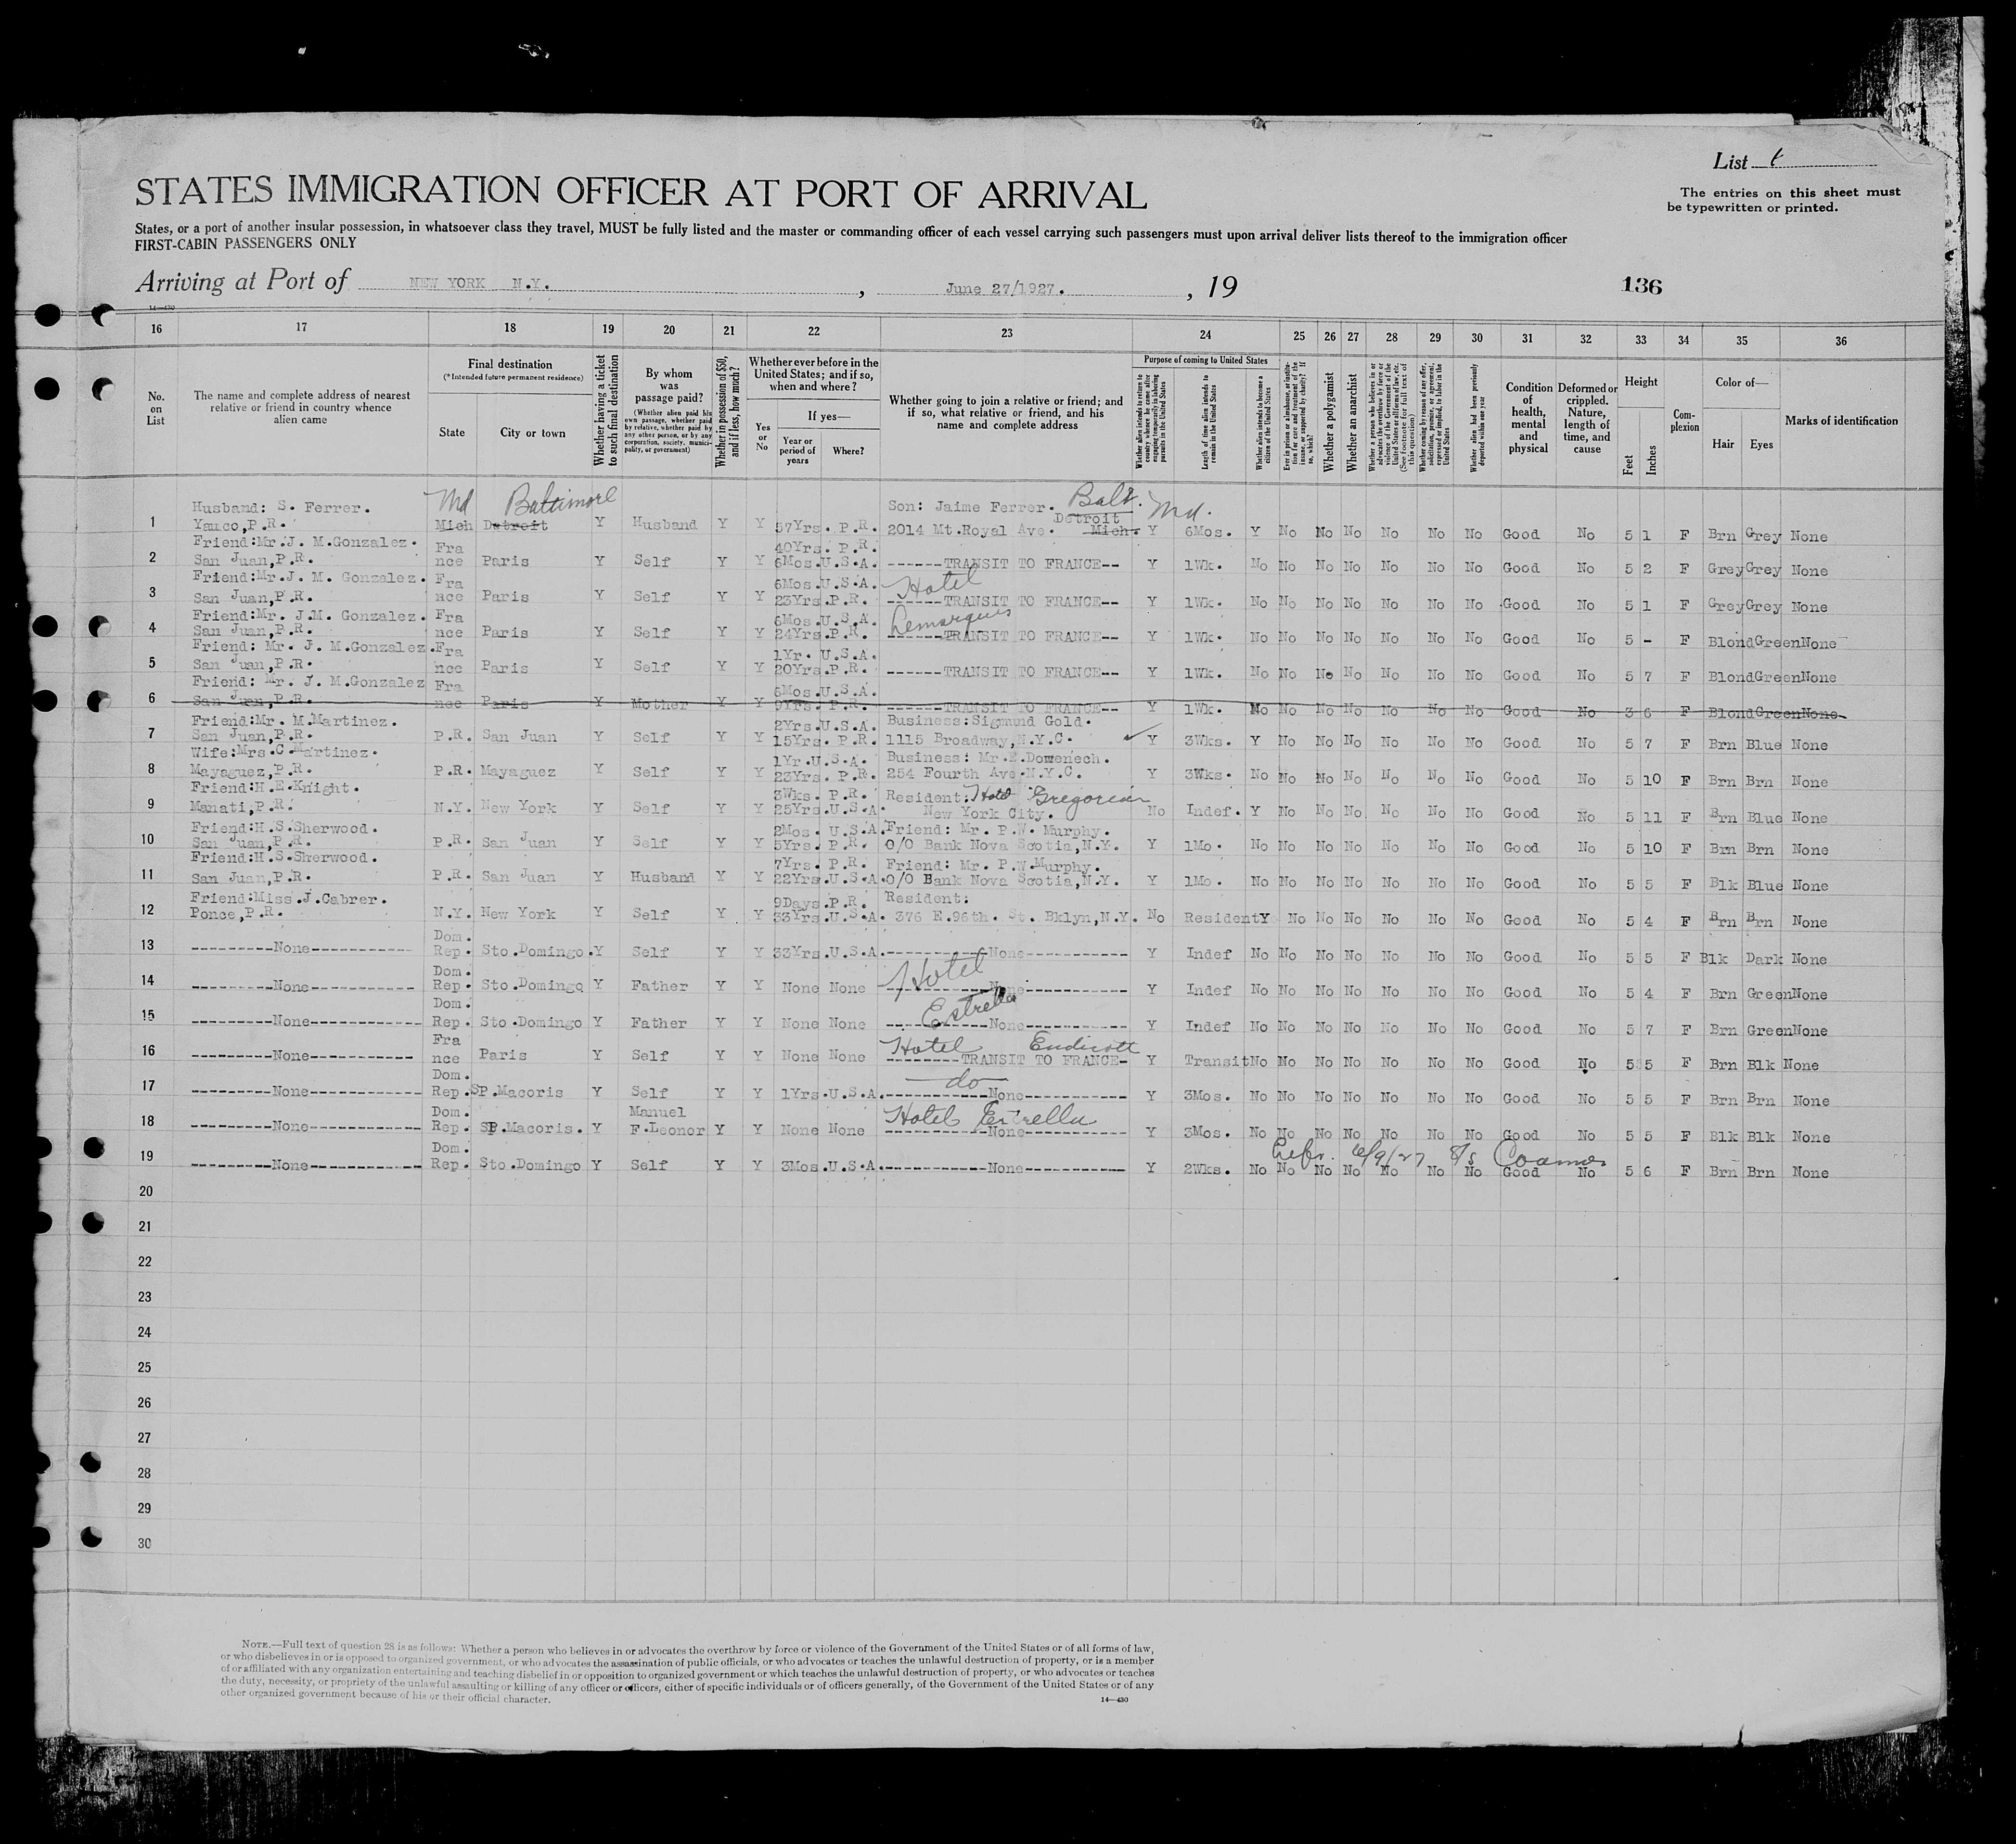 List
STATES IMMIGRATION OFFICER AT PORT OF ARRIVAL
The entries on this sheet must
be typewritten or printed.
States, or a port of another insular possession, in whatsoever class they travel, MUST be fully listed and the master or commanding officer of each vessel carrying such passengers must upon arrival deliver lists thereof to the immigration officer
FIRST-CABIN PASSENGERS ONLY
Arriving at Port of NEW YORK N.Y. , June 27/1927. , 19 136
14—430
16 17 18 19 20 21 22 23 24 25 26 27 28 29 30 31 32 33 34 35 36
No. on List
The name and complete address of nearest relative or friend in country whence alien came
Final destination
(*Intended future permanent residence)
State
City or town
Whether having a ticket to such final destination
By whom was passage paid?
(Whether alien paid his own passage, whether paid by relative, whether paid by any other person, or by any corporation, society, municipality, or government)
Whether in possession of $50, and if less, how much?
Whether ever before in the United States; and if so, when and where?
Yes or No
If yes—
Year or period of years
Where?
Whether going to join a relative or friend; and if so, what relative or friend, and his name and complete address
Purpose of coming to United States
Whether alien intends to return to country whence he came after engaging temporarily in laboring pursuits in the United States
Length of time alien intends to remain in the United States
Whether alien intends to become a citizen of the United States
Ever in prison or almshouse, or institution for care and treatment of the insane, or supported by charity? If so, which?
Whether a polygamist
Whether an anarchist
Whether a person who believes in or advocates the overthrow by force or violence of the Government of the United States or all forms of law, etc. (See footnote for full text of this question)
Whether coming by reason of any offer, solicitation, promise, or agreement, expressed or implied, to labor in the United States
Whether alien had been previously deported within one year
Condition of health, mental and physical
Deformed or crippled. Nature, length of time, and cause
Height
Feet
Inches
Complexion
Color of—
Hair
Eyes
Marks of identification
Husband: S. Ferrer. Md Baltimore Son: Jaime Ferrer. Balt. Md.
1 Yauco,P.R. Mich Detroit Y Husband Y Y 57Yrs. P.R. 2014 Mt.Royal Ave. Detroit Mich. Y 6Mos. Y No No No No No No Good No 5 1 F Brn Grey None
Friend:Mr.J. M.Gonzalez. Fra 40Yrs. P.R.
2 San Juan,P.R. nce Paris Y Self Y Y 6Mos.U.S.A. ------TRANSIT TO FRANCE-- Y 1Wk. No No No No No No No Good No 5 2 F Grey Grey None
Friend:Mr.J. M. Gonzalez. Fra 6Mos.U.S.A. Hotel
3 San Juan,P.R. nce Paris Y Self Y Y 23Yrs.P.R. ------TRANSIT TO FRANCE-- Y 1Wk. No No No No No No No Good No 5 1 F Grey Grey None
Friend:Mr. J.M. Gonzalez. Fra 6Mos.U.S.A. Lemarquis
4 San Juan,P.R. nce Paris Y Self Y Y 24Yrs.P.R. ------TRANSIT TO FRANCE-- Y 1Wk. No No No No No No No Good No 5 - F Blond Green None
Friend: Mr. J. M.Gonzalez. Fra 1Yr. U.S.A.
5 San Juan,P.R. nce Paris Y Self Y Y 20Yrs.P.R. ------TRANSIT TO FRANCE-- Y 1Wk. No No No No No No No Good No 5 7 F Blond Green None
Friend: Mr. J. M.Gonzalez Fra 6Mos.U.S.A.
6 San Juan,P.R. nce Paris Y Mother Y Y 9Yrs. P.R. ------TRANSIT TO FRANCE-- Y 1Wk. No No No No No No No Good No 3 6 F Blond Green None
Friend:Mr. M.Martinez. 2Yrs.U.S.A. Business:Sigmund Gold.
7 San Juan,P.R. P.R. San Juan Y Self Y Y 15Yrs. P.R. 1115 Broadway,N.Y.C. Y 3Wks. Y No No No No No No Good No 5 7 F Brn Blue None
Wife:Mrs.C.Martinez. 1Yr.U.S.A. Business: Mr.E.Domenech.
8 Mayaguez,P.R. P.R. Mayaguez Y Self Y Y 23Yrs. P.R. 254 Fourth Ave.N.Y.C. Y 3Wks. No No No No No No No Good No 5 10 F Brn Brn None
Friend:H.E.Knight. 3Wks. P.R. Resident: Hotel Gregorian
9 Manati,P.R. N.Y. New York Y Self Y Y 25Yrs.U.S.A. New York City. No Indef. Y No No No No No No Good No 5 11 F Brn Blue None
Friend:H.S.Sherwood. 2Mos. U.S.A. Friend: Mr. P.W. Murphy.
10 San Juan,P.R. P.R. San Juan Y Self Y Y 5Yrs. P.R. O/O Bank Nova Scotia,N.Y. Y 1Mo. No No No No No No No Good No 5 10 F Brn Brn None
Friend:H.S.Sherwood. 7Yrs. P.R. Friend: Mr. P.W.Murphy.
11 San Juan,P.R. P.R. San Juan Y Husband Y Y 22Yrs.U.S.A. O/O Bank Nova Scotia,N.Y. Y 1Mo. No No No No No No No Good No 5 5 F Blk Blue None
Friend:Miss.J.Cabrer. 9Days.P.R. Resident:
12 Ponce,P.R. N.Y. New York Y Self Y Y 33Yrs.U.S.A. 376 E.96th. St. Bklyn,N.Y. No Resident Y No No No No No No Good No 5 4 F Brn Brn None
Dom.
13 ---------None----------- Rep. Sto.Domingo. Y Self Y Y 33Yrs.U.S.A. -----------None----------- Y Indef No No No No No No No Good No 5 5 F Blk Dark None
Dom. Hotel
14 ---------None----------- Rep. Sto.Domingo Y Father Y Y None None -----------None----------- Y Indef No No No No No No No Good No 5 4 F Brn Green None
Dom. Estrella
15 ---------None------------ Rep. Sto.Domingo Y Father Y Y None None -----------None----------- Y Indef No No No No No No No Good No 5 7 F Brn Green None
Fra Hotel Endicott
16 ---------None----------- nce Paris Y Self Y Y None None --------TRANSIT TO FRANCE- Y Transit No No No No No No No Good No 5 5 F Brn Blk None
Dom. —do—
17 ---------None------------ Rep. SP.Macoris Y Self Y Y 1Yrs.U.S.A. ------------None----------- Y 3Mos. No No No No No No No Good No 5 5 F Brn Brn None
Dom. Manuel Hotel Estrella
18 ---------None------------ Rep. SP.Macoris. Y F.Leonor Y Y None None -----------None----------- Y 3Mos. No No No No No No No Good No 5 5 F Blk Blk None
Dom. 6/9/27 S/S Coamo
19 ---------None------------ Rep. Sto.Domingo Y Self Y Y 3Mos.U.S.A. ------------None----------- Y 2Wks. No No No No No No No Good No 5 6 F Brn Brn None
20
21
22
23
24
25
26
27
28
29
30
NOTE.—Full text of question 28 is as follows: Whether a person who believes in or advocates the overthrow by force or violence of the Government of the United States or of all forms of law,
or who disbelieves in or is opposed to organized government, or who advocates the assassination of public officials, or who advocates or teaches the unlawful destruction of property, or is a member
of or affiliated with any organization entertaining and teaching disbelief in or opposition to organized government or which teaches the unlawful destruction of property, or who advocates or teaches
the duty, necessity, or propriety of the unlawful assaulting or killing of any officer or officers, either of specific individuals or of officers generally, of the Government of the United States or of any
other organized government because of his or their official character.
14—430